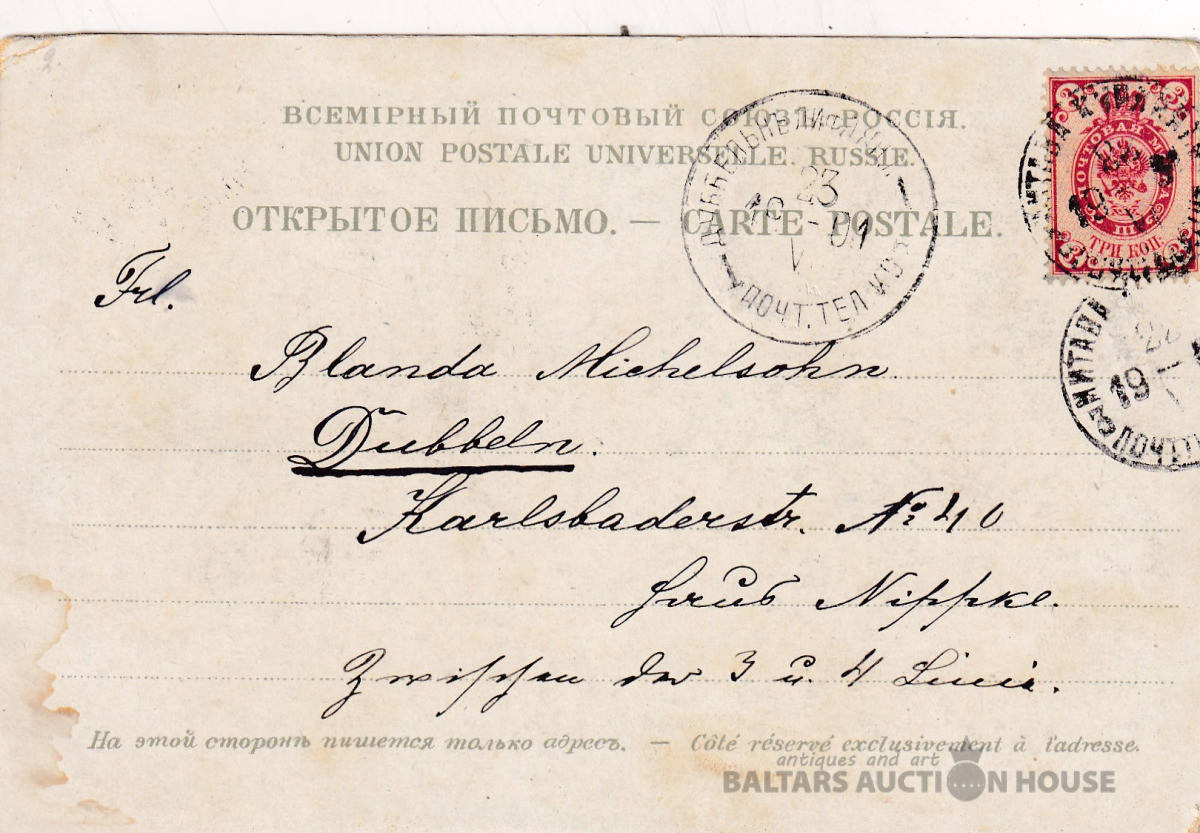 2.
ВСЕМІРНЫЙ ПОЧТОВЫЙ СОЮЗЪ. РОССІЯ.
UNION POSTALE UNIVERSELLE. RUSSIE.
ОТКРЫТОЕ ПИСЬМО. — CARTE POSTALE.
23
19 - 01
V
ПОЧТ. ТЕЛ.
3 3
ПОЧТОВАЯ МАРКА
ТРИ КОП.
3 3
МИТАВА
22
19 -
ПОЧТ
Frl.
Blanda Michelsohn
Dubbeln.
Karlsbaderstr. No 40
Haus Nippke.
Zwischen der 3 u. 4 Linie.
На этой сторонѣ пишется только адресъ. — Côté réservé exclusivement à l'adresse.
antiques and art
BALTARS AUCTION HOUSE